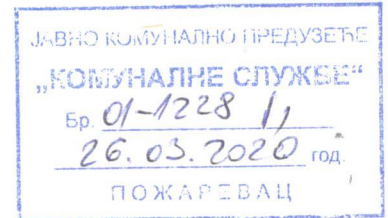 ЈАВНО КОМУНАЛНО ПРЕДУЗЕЋЕ
„КОМУНАЛНЕ СЛУЖБЕ“
Бр. 01-1228/1,
26.03.2020 год.
ПОЖАРЕВАЦ